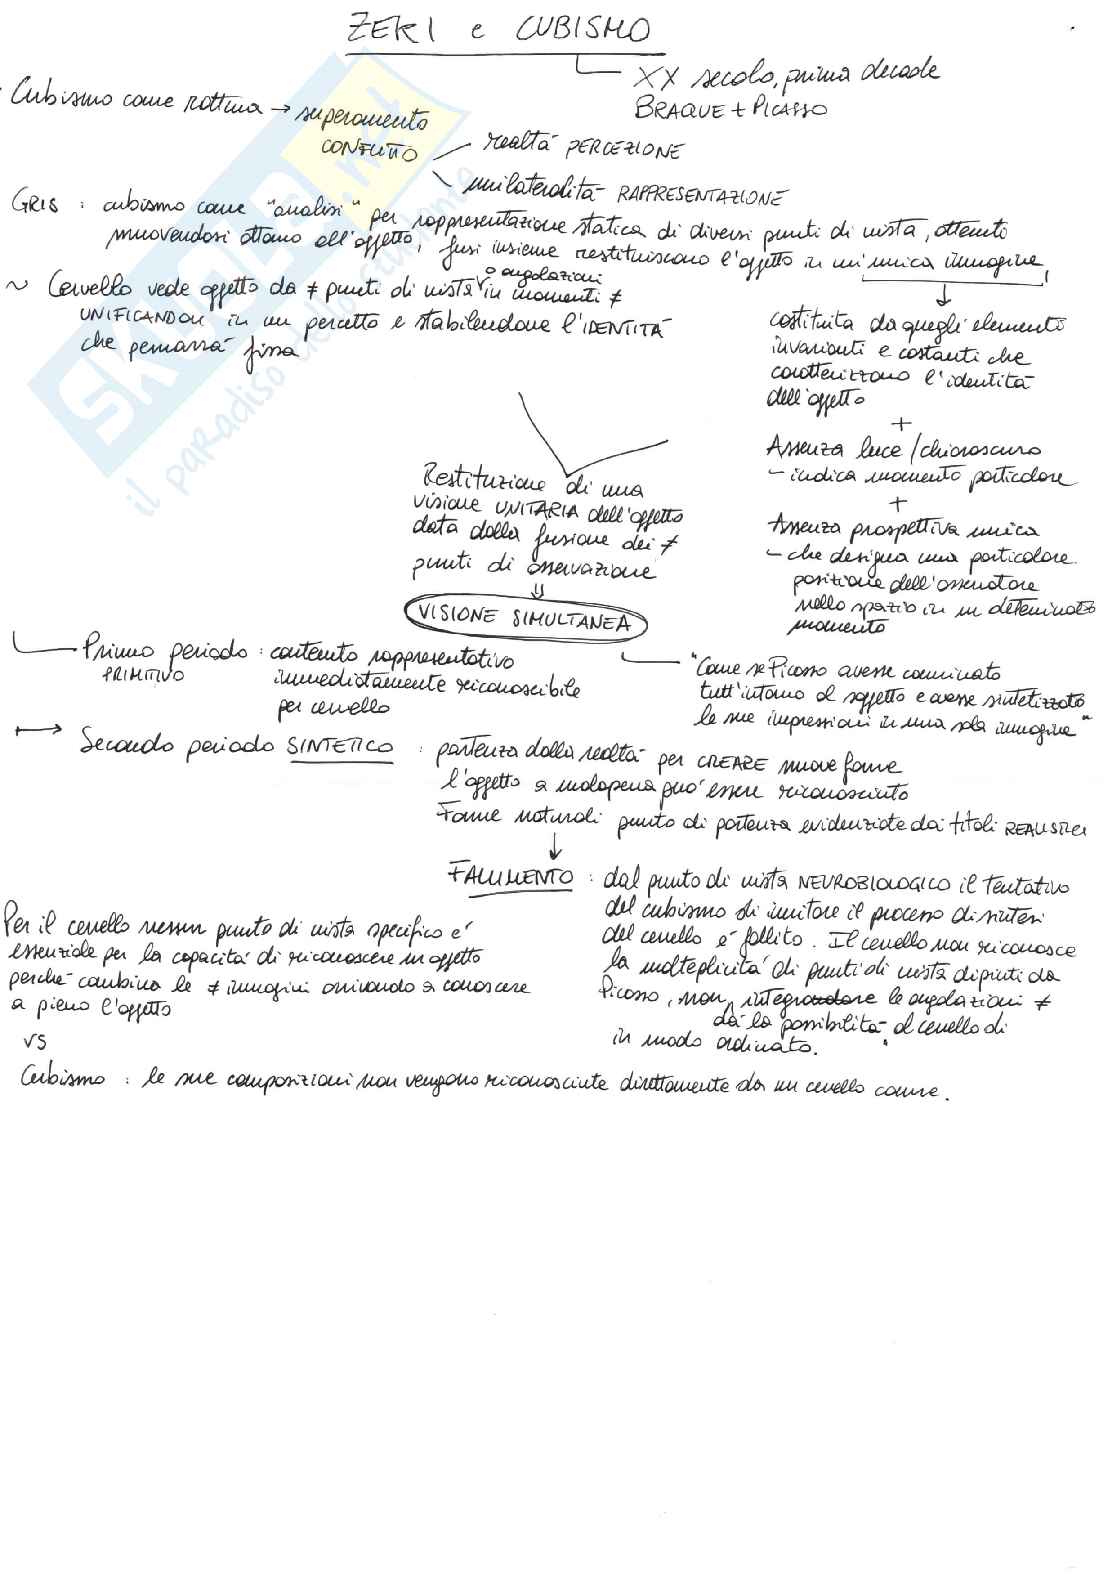 ZEKI e CUBISMO
XX secolo, prima decade
BRAQUE + PICASSO
Cubismo come rottura → superamento
CONFLITTO
realtà PERCEZIONE
unilateralità RAPPRESENTAZIONE
GRIS : cubismo come "analisi" per rappresentazione statica di diversi punti di vista, ottenuto
muovendosi attorno all'oggetto, fusi insieme restituiscono l'oggetto in un'unica immagine,
~ Cervello vede oggetto da ≠ punti di vista o angolazioni in momenti ≠
UNIFICANDOLI in un percetto e stabilendone l'IDENTITÀ
che permarrà fissa
costituita da quegli elementi
invarianti e costanti che
caratterizzano l'identità
dell'oggetto
+
Assenza luce / chiaroscuro
- indica momento particolare
+
Assenza prospettiva unica
- che designa una particolare
posizione dell'osservatore
nello spazio in un determinato
momento
Restituzione di una
visione UNITARIA dell'oggetto
data dalla fusione dei ≠
punti di osservazione
⇓
VISIONE SIMULTANEA
"Come se Picasso avesse camminato
tutt'intorno al soggetto e avesse sintetizzato
le sue impressioni in una sola immagine"
Primo periodo : contenuto rappresentativo
PRIMITIVO
immediatamente riconoscibile
per cervello
→ Secondo periodo SINTETICO : partenza dalla realtà per CREARE nuove forme
l'oggetto a malapena può essere riconosciuto
Forme naturali punto di partenza evidenziate dai titoli REALISTICI
↓
FALLIMENTO : dal punto di vista NEUROBIOLOGICO il tentativo
del cubismo di imitare il processo di sintesi
del cervello è fallito. Il cervello non riconosce
la molteplicità di punti di vista dipinti da
Picasso, non dà la possibilità al cervello di integrare le angolazioni ≠
in modo ordinato.
Per il cervello nessun punto di vista specifico è
essenziale per la capacità di riconoscere un oggetto
perché combina le ≠ immagini arrivando a conoscere
a pieno l'oggetto
VS
Cubismo : le sue composizioni non vengono riconosciute direttamente da un cervello comune.
SKUOLA.net
il paradiso dello studente